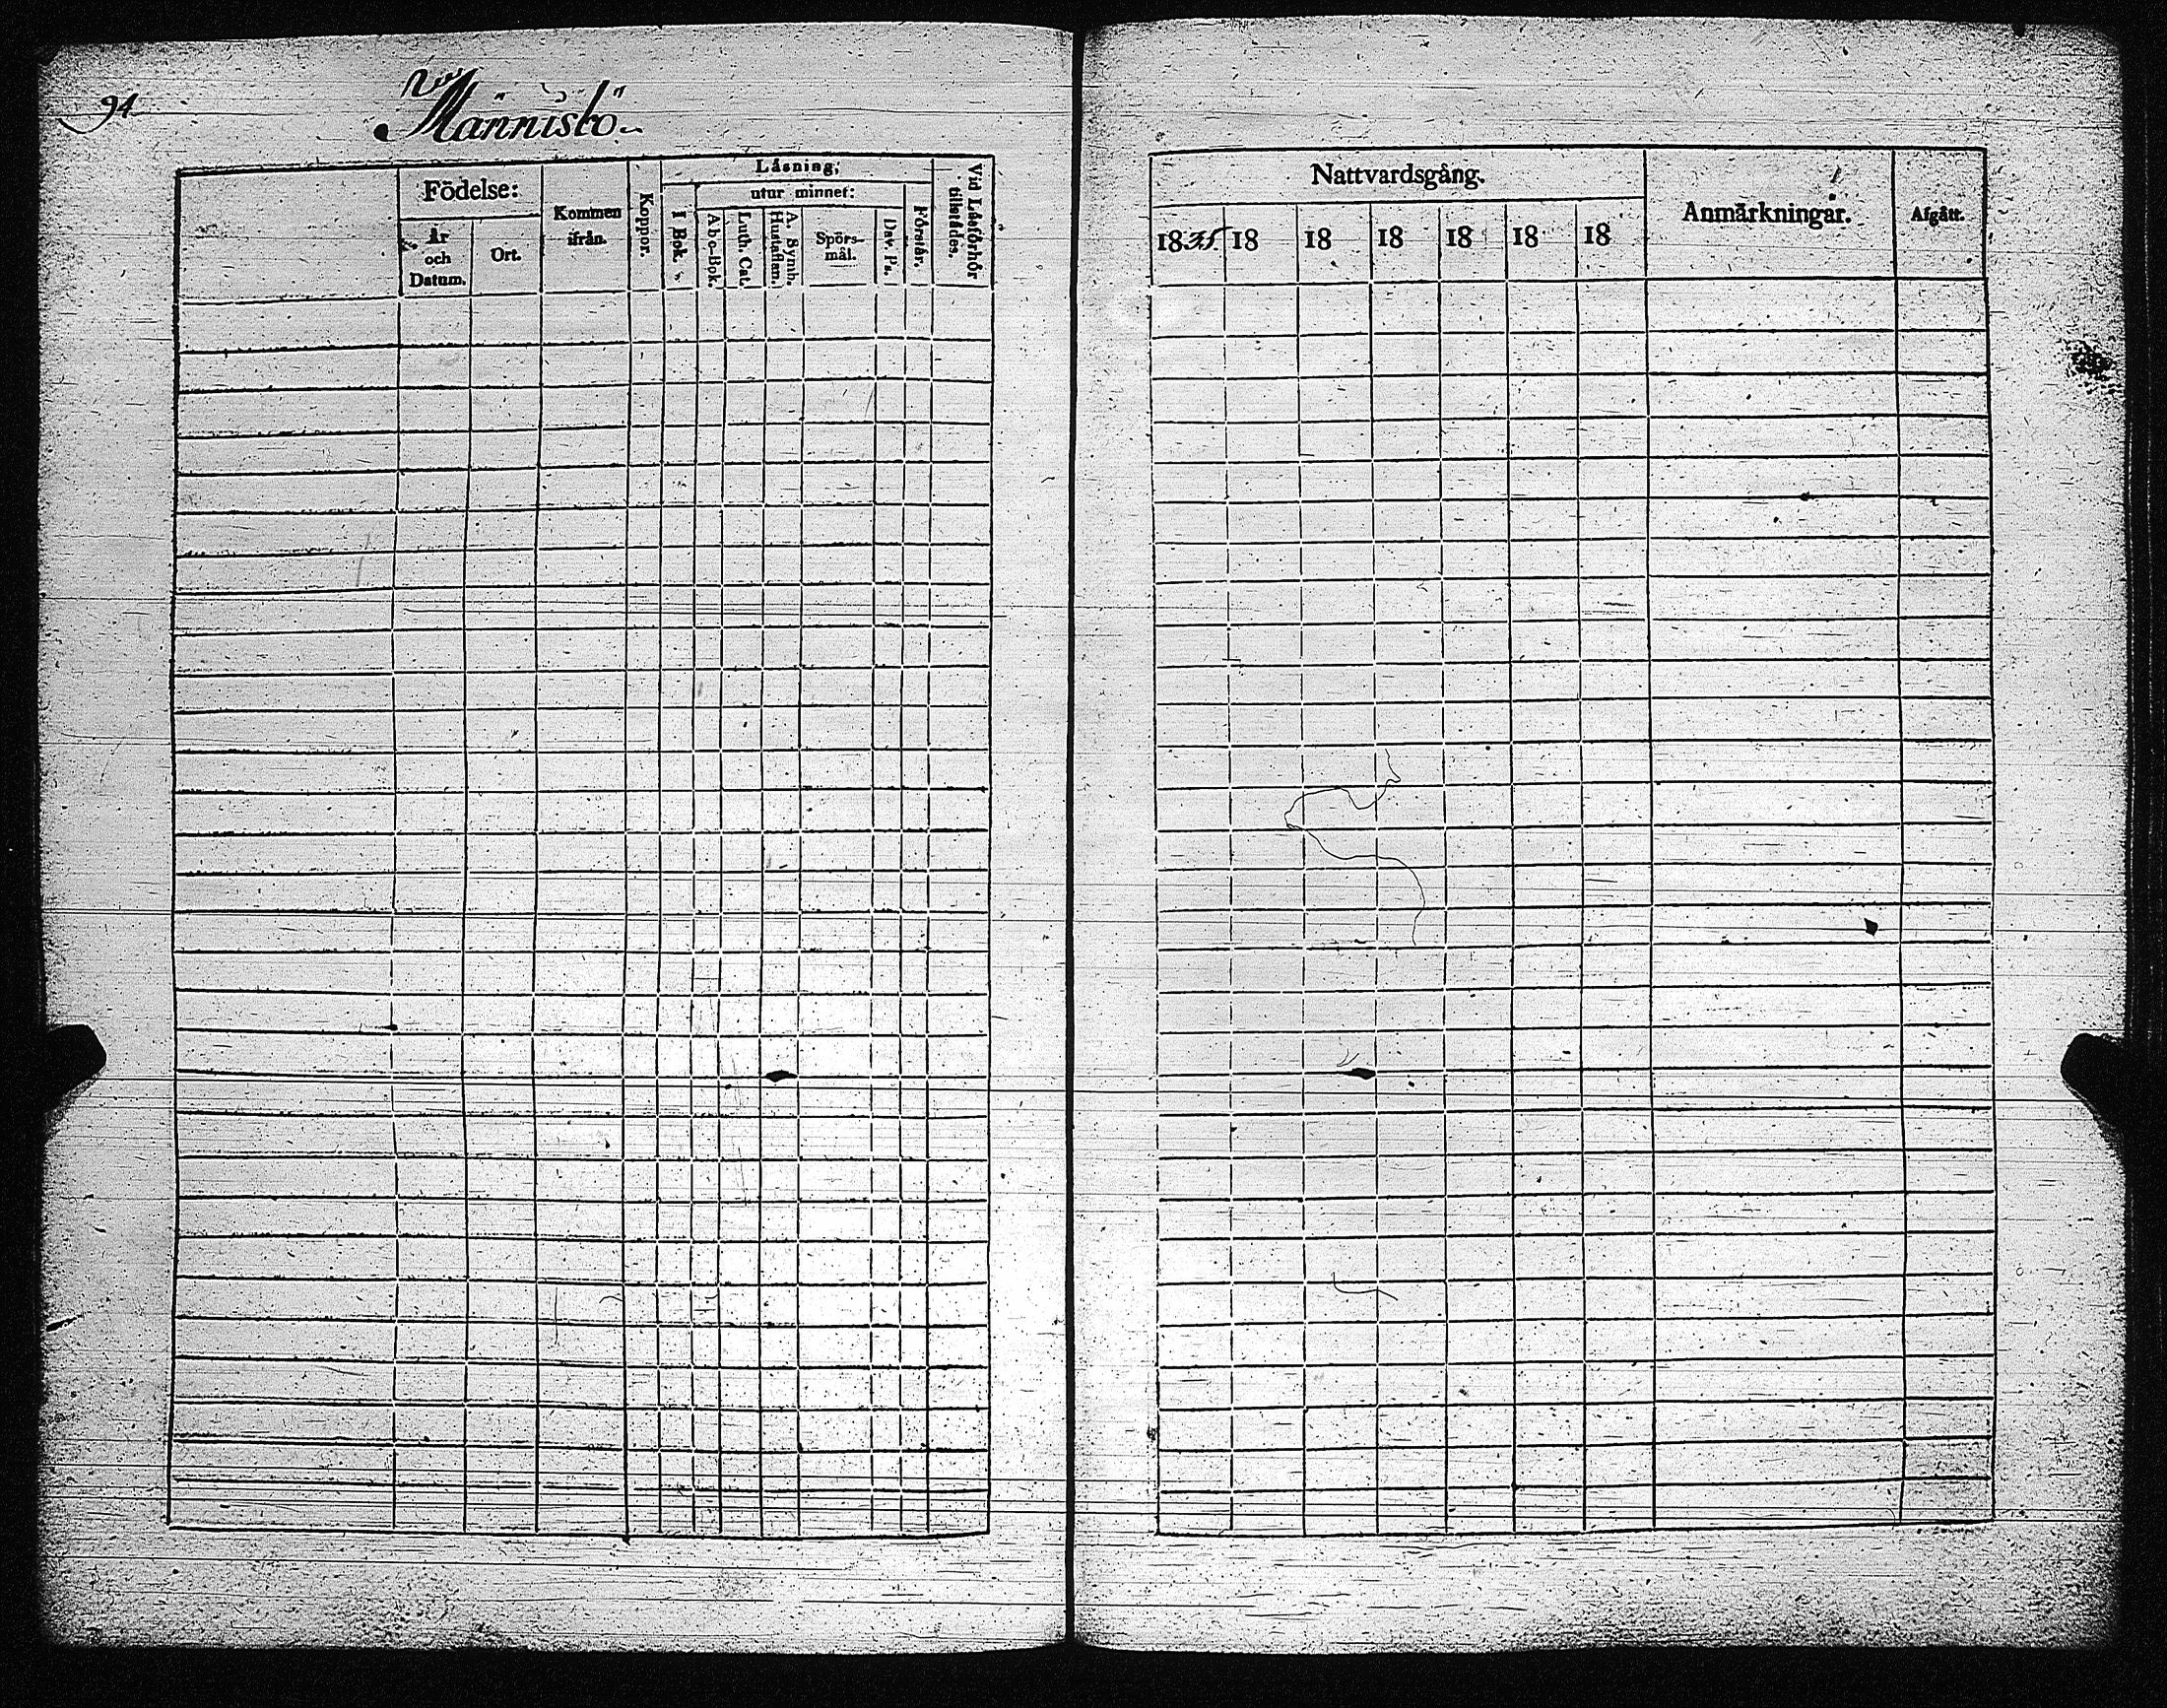 94
Männistö
Födelse:
År och Datum.
Ort.
Kommen ifrån.
Koppor.
Läsning,
utur minnet:
I Bok.
Abc-Bok.
Luth. Cat.
A. Symb. Hustaflan.
Spörs-mål.
Dav. Ps.
Förstår.
Vid Läsförhör tillstädes.
Nattvardsgång.
1835 18 18 18 18 18 18
Anmärkningar.
Afgått.